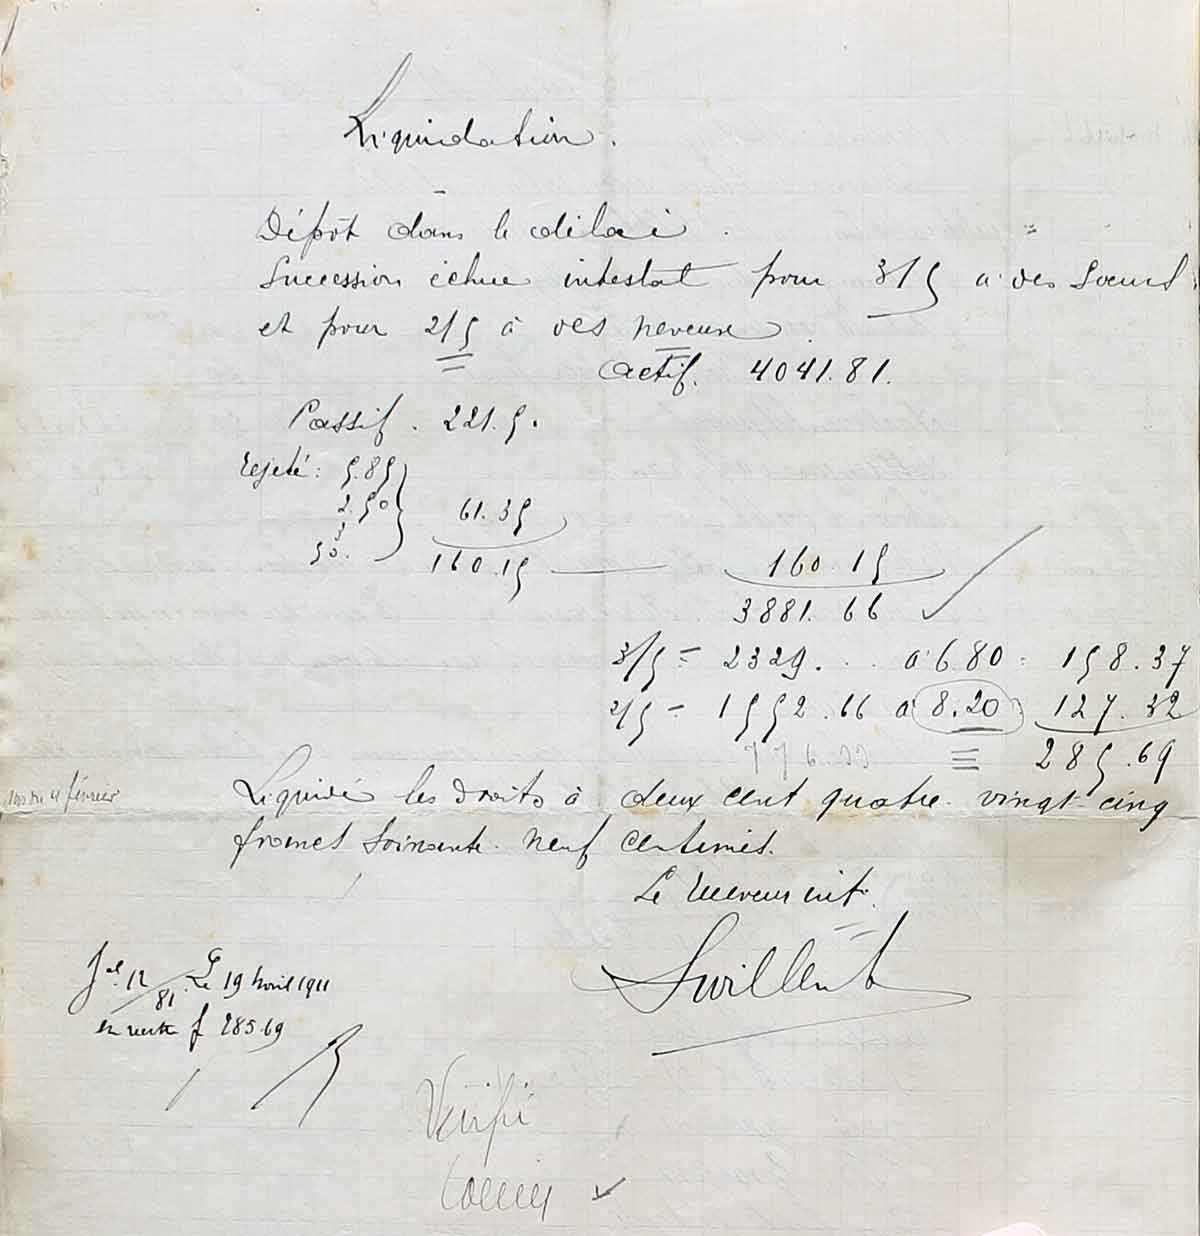 Liquidation.
Dépôt dans le délai.
Succession échue intestat pour 3/5 à des Soeurs
et pour 2/5 à des neveux
Actif. 4041.81.
Passif. 221.5.
rejeté: 5.85
2.50
3
50.
61.35
160.15
160.15
3881.66
3/5 = 2329. . . à 6.80 = 158.37
2/5 = 1552.66 à 8.20 127.32
776.33
285.69
4 février
Liquidé les droits à deux cent quatre-vingt-cinq
francs soixante-neuf centimes.
Le receveur int.
Jel. 12/81. Le 19 Avril 1911
en recette f 285.69
Vérifié